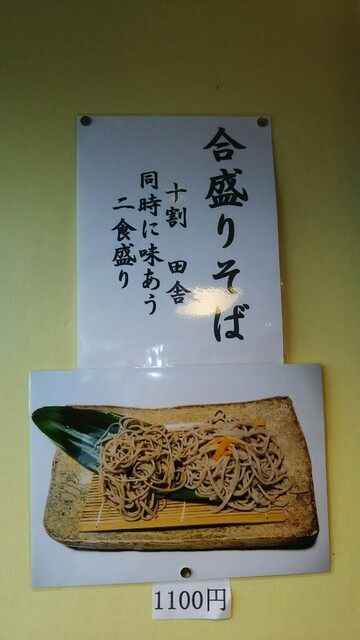 合盛りそば
十割　田舎
同時に味あう
二食盛り
1100円